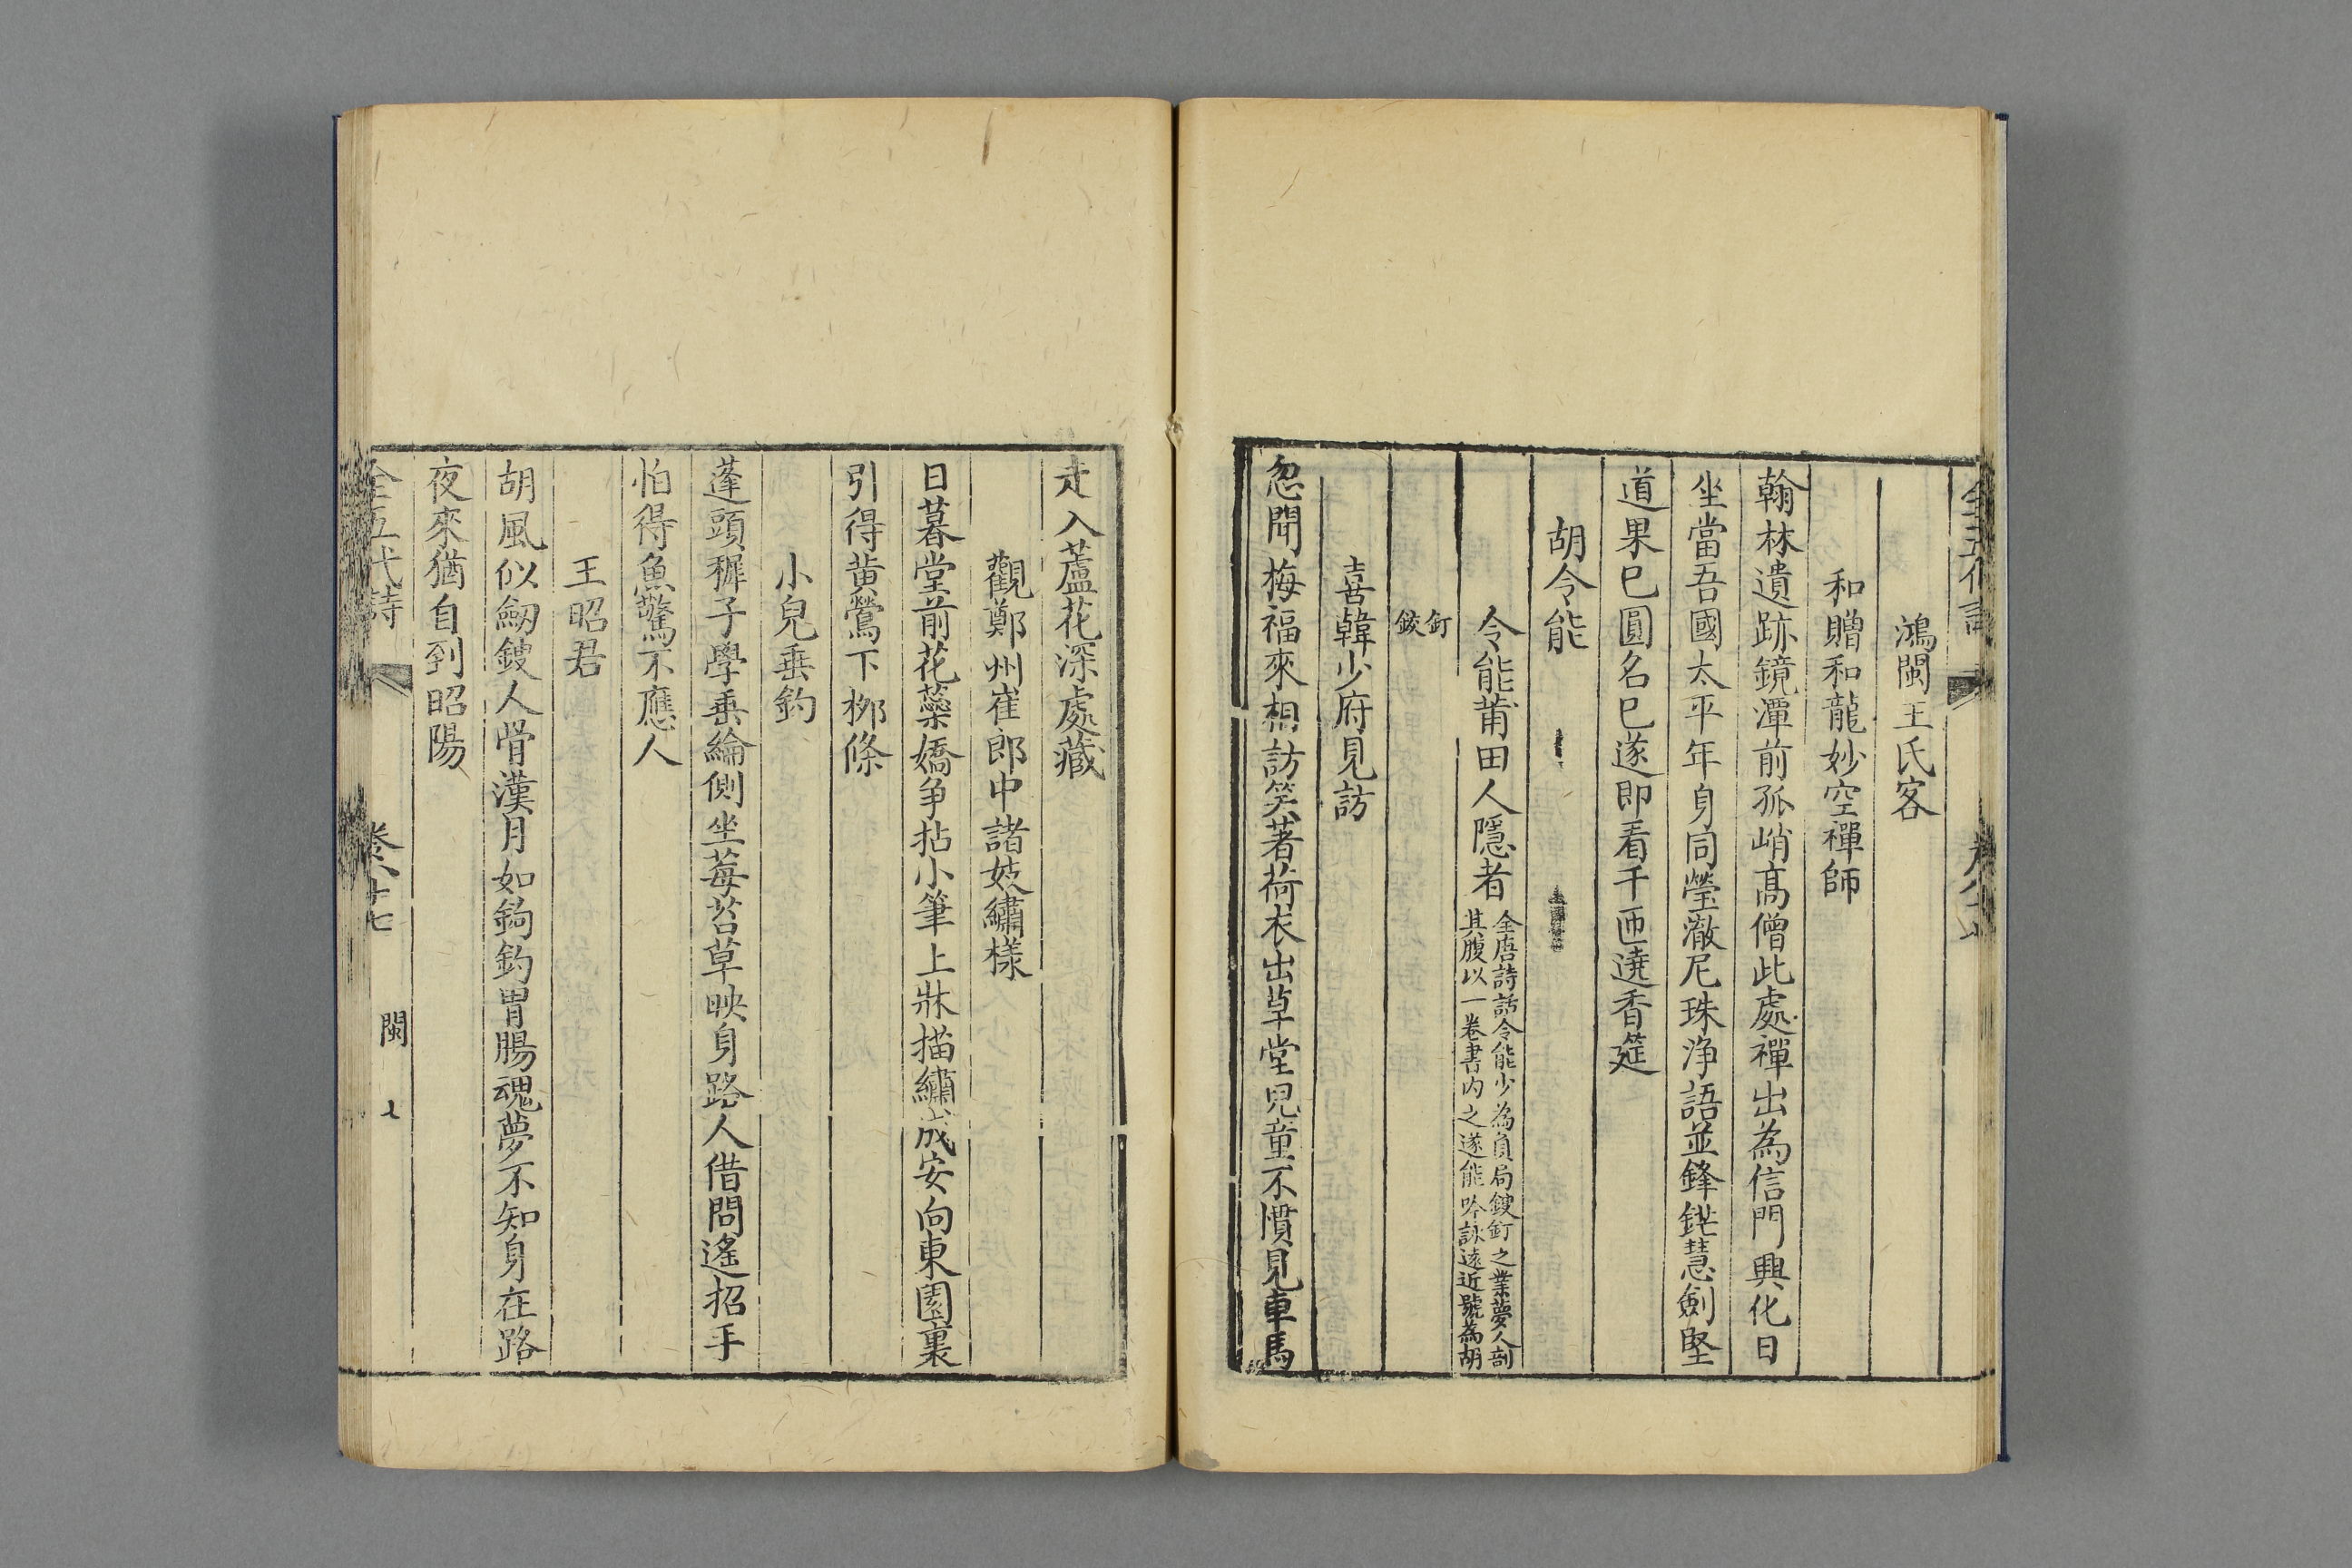 鴻閩王氏客
和贈和龍妙空禪師
翰林遺跡鏡潭前孤峭髙僧此處禪出為信門興化日
坐當吾國太平年身同瑩澈尼珠淨語並鋒鋩慧劍堅
道果已圓名已遂即看千匝遶香筵
胡令能
令能莆田人隱者全唐詩話令能少為負局鎪釘之業夢人剖
其腹以一卷書内之遂能吟詠遠近號為胡
釘
鉸
喜韓少府見訪
忽聞梅福來相訪笑著荷衣出草堂兒童不慣見車馬
走入蘆花深處藏
觀鄭州崔郎中諸妓繡樣
日暮堂前花蘂嬌爭拈小筆上牀描繡成安向東園裏
引得黄鶯下栁條
小兒垂釣
蓬頭穉子學垂綸側坐莓苔草映身路人借問遙招手
怕得魚驚不應人
王昭君
胡風似劒鎪人骨漢月如鉤釣胃腸魂夢不知身在路
夜來猶自到昭陽
全五代詩
卷八十七
閩
七